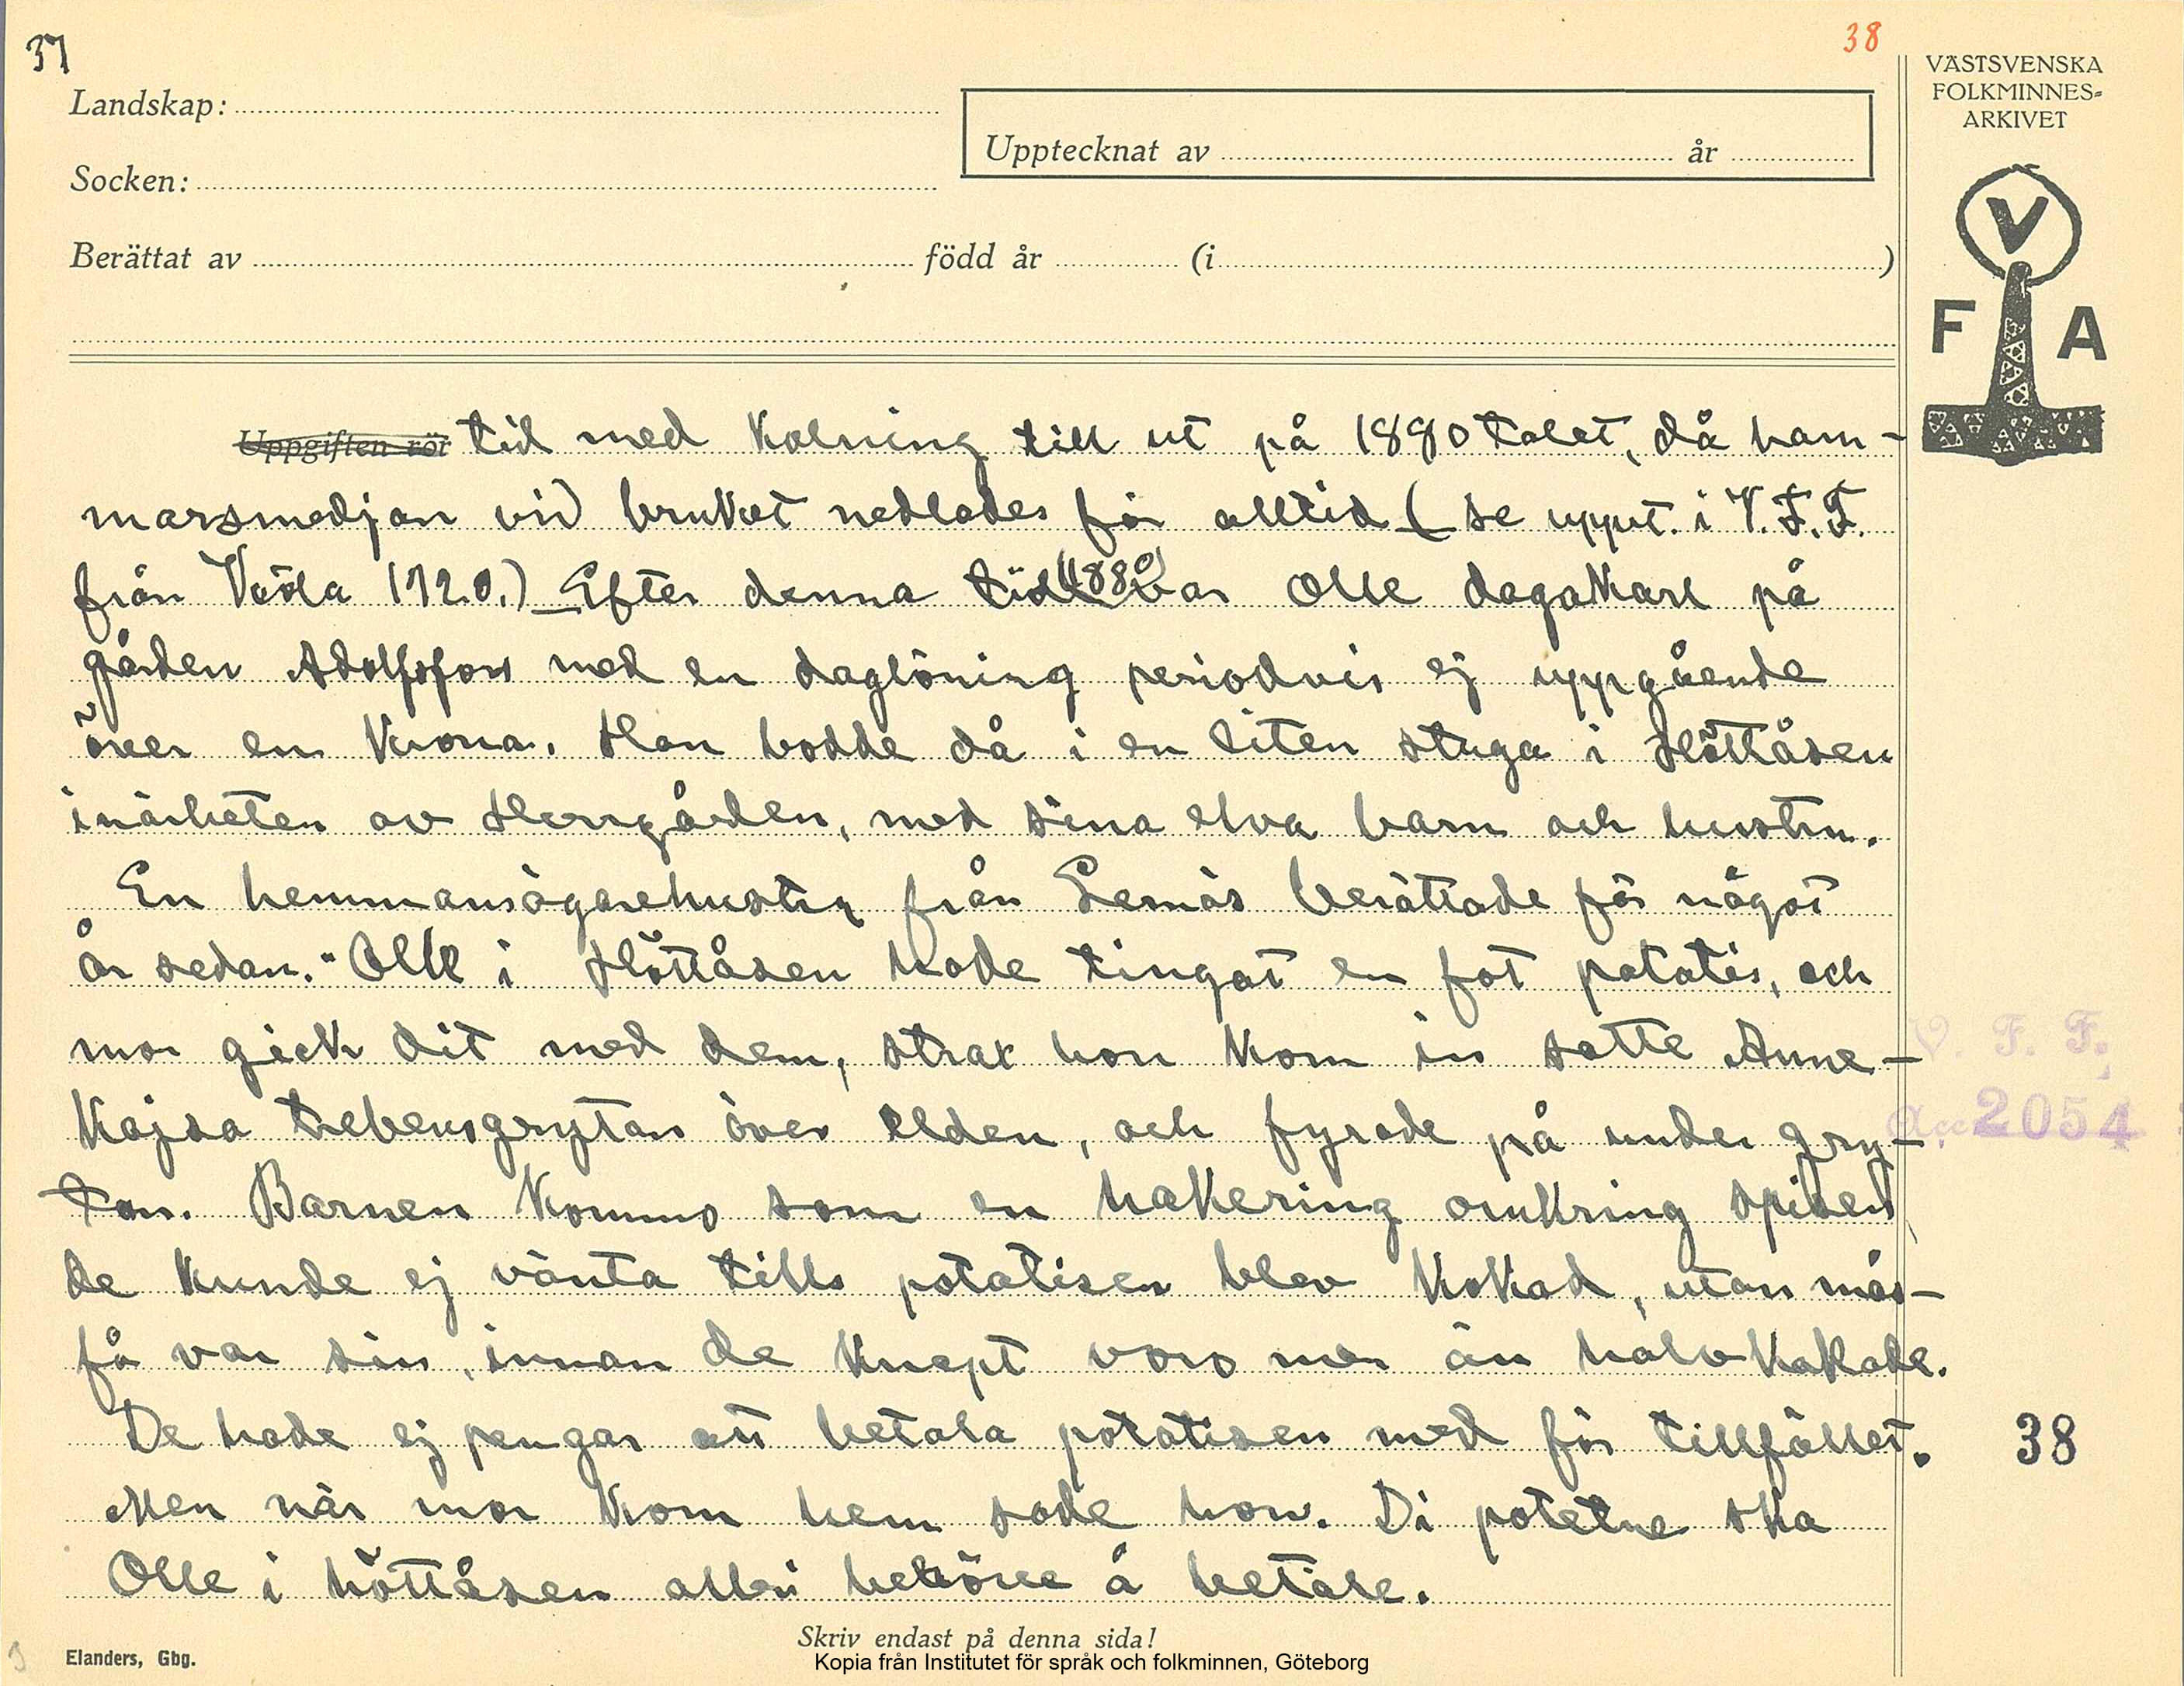 37
38
VÄSTSVENSKA
FOLKMINNES-
ARKIVET
Landskap:
Upptecknat av år
Socken:
Berättat av född år (i )
V
F A
Uppgiften rör tid med Kolning till ut på 1880 talet, då ham-
marsmedjan vid bruket nedlades för alltid (se uppt. i V.F.F.
från 1720.) Efter denna tid (1880) var Olle dagakarl på
gården Adolfsfors med en daglöning periodvis ej uppgående
över en Krona. Han bodde då i en liten stuga i Höttåsen
inärheten av Herrgården, med sina elva barn och hustru.
En hemmansägarehustru från Lernäs berättade för något
år sedan. "Olle i Höttåsen hade tingat en fot potatis, och
mor gick dit med dem, strax hon Kom in satte Anne-
Kajsa trebensgrytan över elden, och fyrade på under gry-
tan. Barnen Kommo som en hakering omkring spisen
de Kunde ej vänta tills potatisen blev Kokad, utan mås-
få var sin, innan de Knapt voro mer än halvKokade.
De hade ej pengar att betala potatisen med för tillfället.
Men när mor Kom hem sade hon. Di potetne ska
Olle i höttåsen alldri behöve å betale.
V. F. F.
Acc. 2054
38
Skriv endast på denna sida!
Elanders, Gbg.
Kopia från Institutet för språk och folkminnen, Göteborg